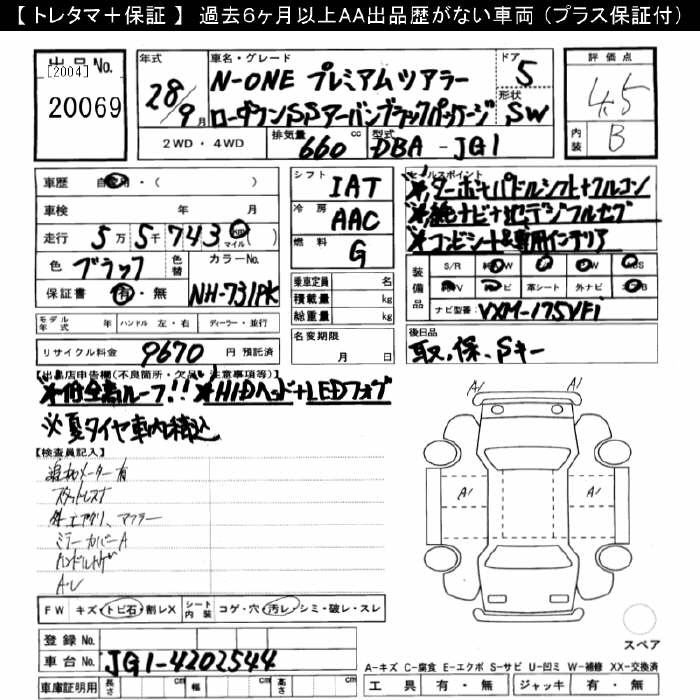 【 トレタマ＋保証 】 過去6ヶ月以上AA出品歴がない車両 (プラス保証付)
出品No.
[2004]
20069
年式
28/9月
車名・グレード
N-ONE プレミアムツアラー
ローダウンSSアーバンブラックパッケージ
ドア
5
形状
SW
評価点
4.5
内装
B
2WD ・ 4WD
排気量
660 cc
型式
DBA - JG1
車歴 自家用・( )
車検 年 月
走行 5万 5千 743 km マイル ( )
色 ブラック 色替 カラーNo. NH-731PK
保証書 有・無
シフト IAT
冷房 AAC
燃料 G
乗車定員 名
積載量 kg
総重量 kg
セールスポイント
※ターボ+パドルシフト+クルコン
※純ナビ+地デジフルセグ
※コンビシート&専用インテリア
装備品
S/R
革シート 外ナビ
ナビ型番: VXM-175VFi
モデル年式 年 ハンドル 左・右 ディーラー・並行
リサイクル料金 9670 円 預託済
名変期限
月 日
後日品
取.保.Sキー
【出品店申告欄(不良箇所・欠品・注意事項等)】
※低全高ルーフ!! ※HIDヘッド+LEDフォグ
※夏タイヤ車内積込
【検査員記入】
追加メーター有
外エアクリ、マフラー
ミラーカバーA
A・L
A1 A1
A1 A1
FW キズ・トビ石・割レX シート内装 コゲ・穴・汚レ・シミ・破レ・スレ
登録No.
車台No. JG1-4202544
車庫証明用 長さ cm 幅 cm 高さ cm
スペア
A-キズ C-腐食 E-エクボ S-サビ U-凹ミ W-補修 XX-交換済
工具 有・無 ジャッキ 有・無